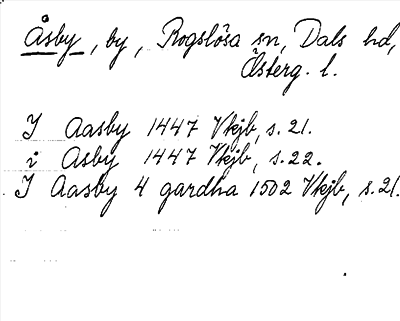 Åsby, by, Rogslösa sn, Dals hd,
Österg. l.
I Aasby 1447 Vkjb, s. 21.
i Asby 1447 Vkjb, s. 22.
I Aasby 4 gardha 1502 Vkjb, s. 21.